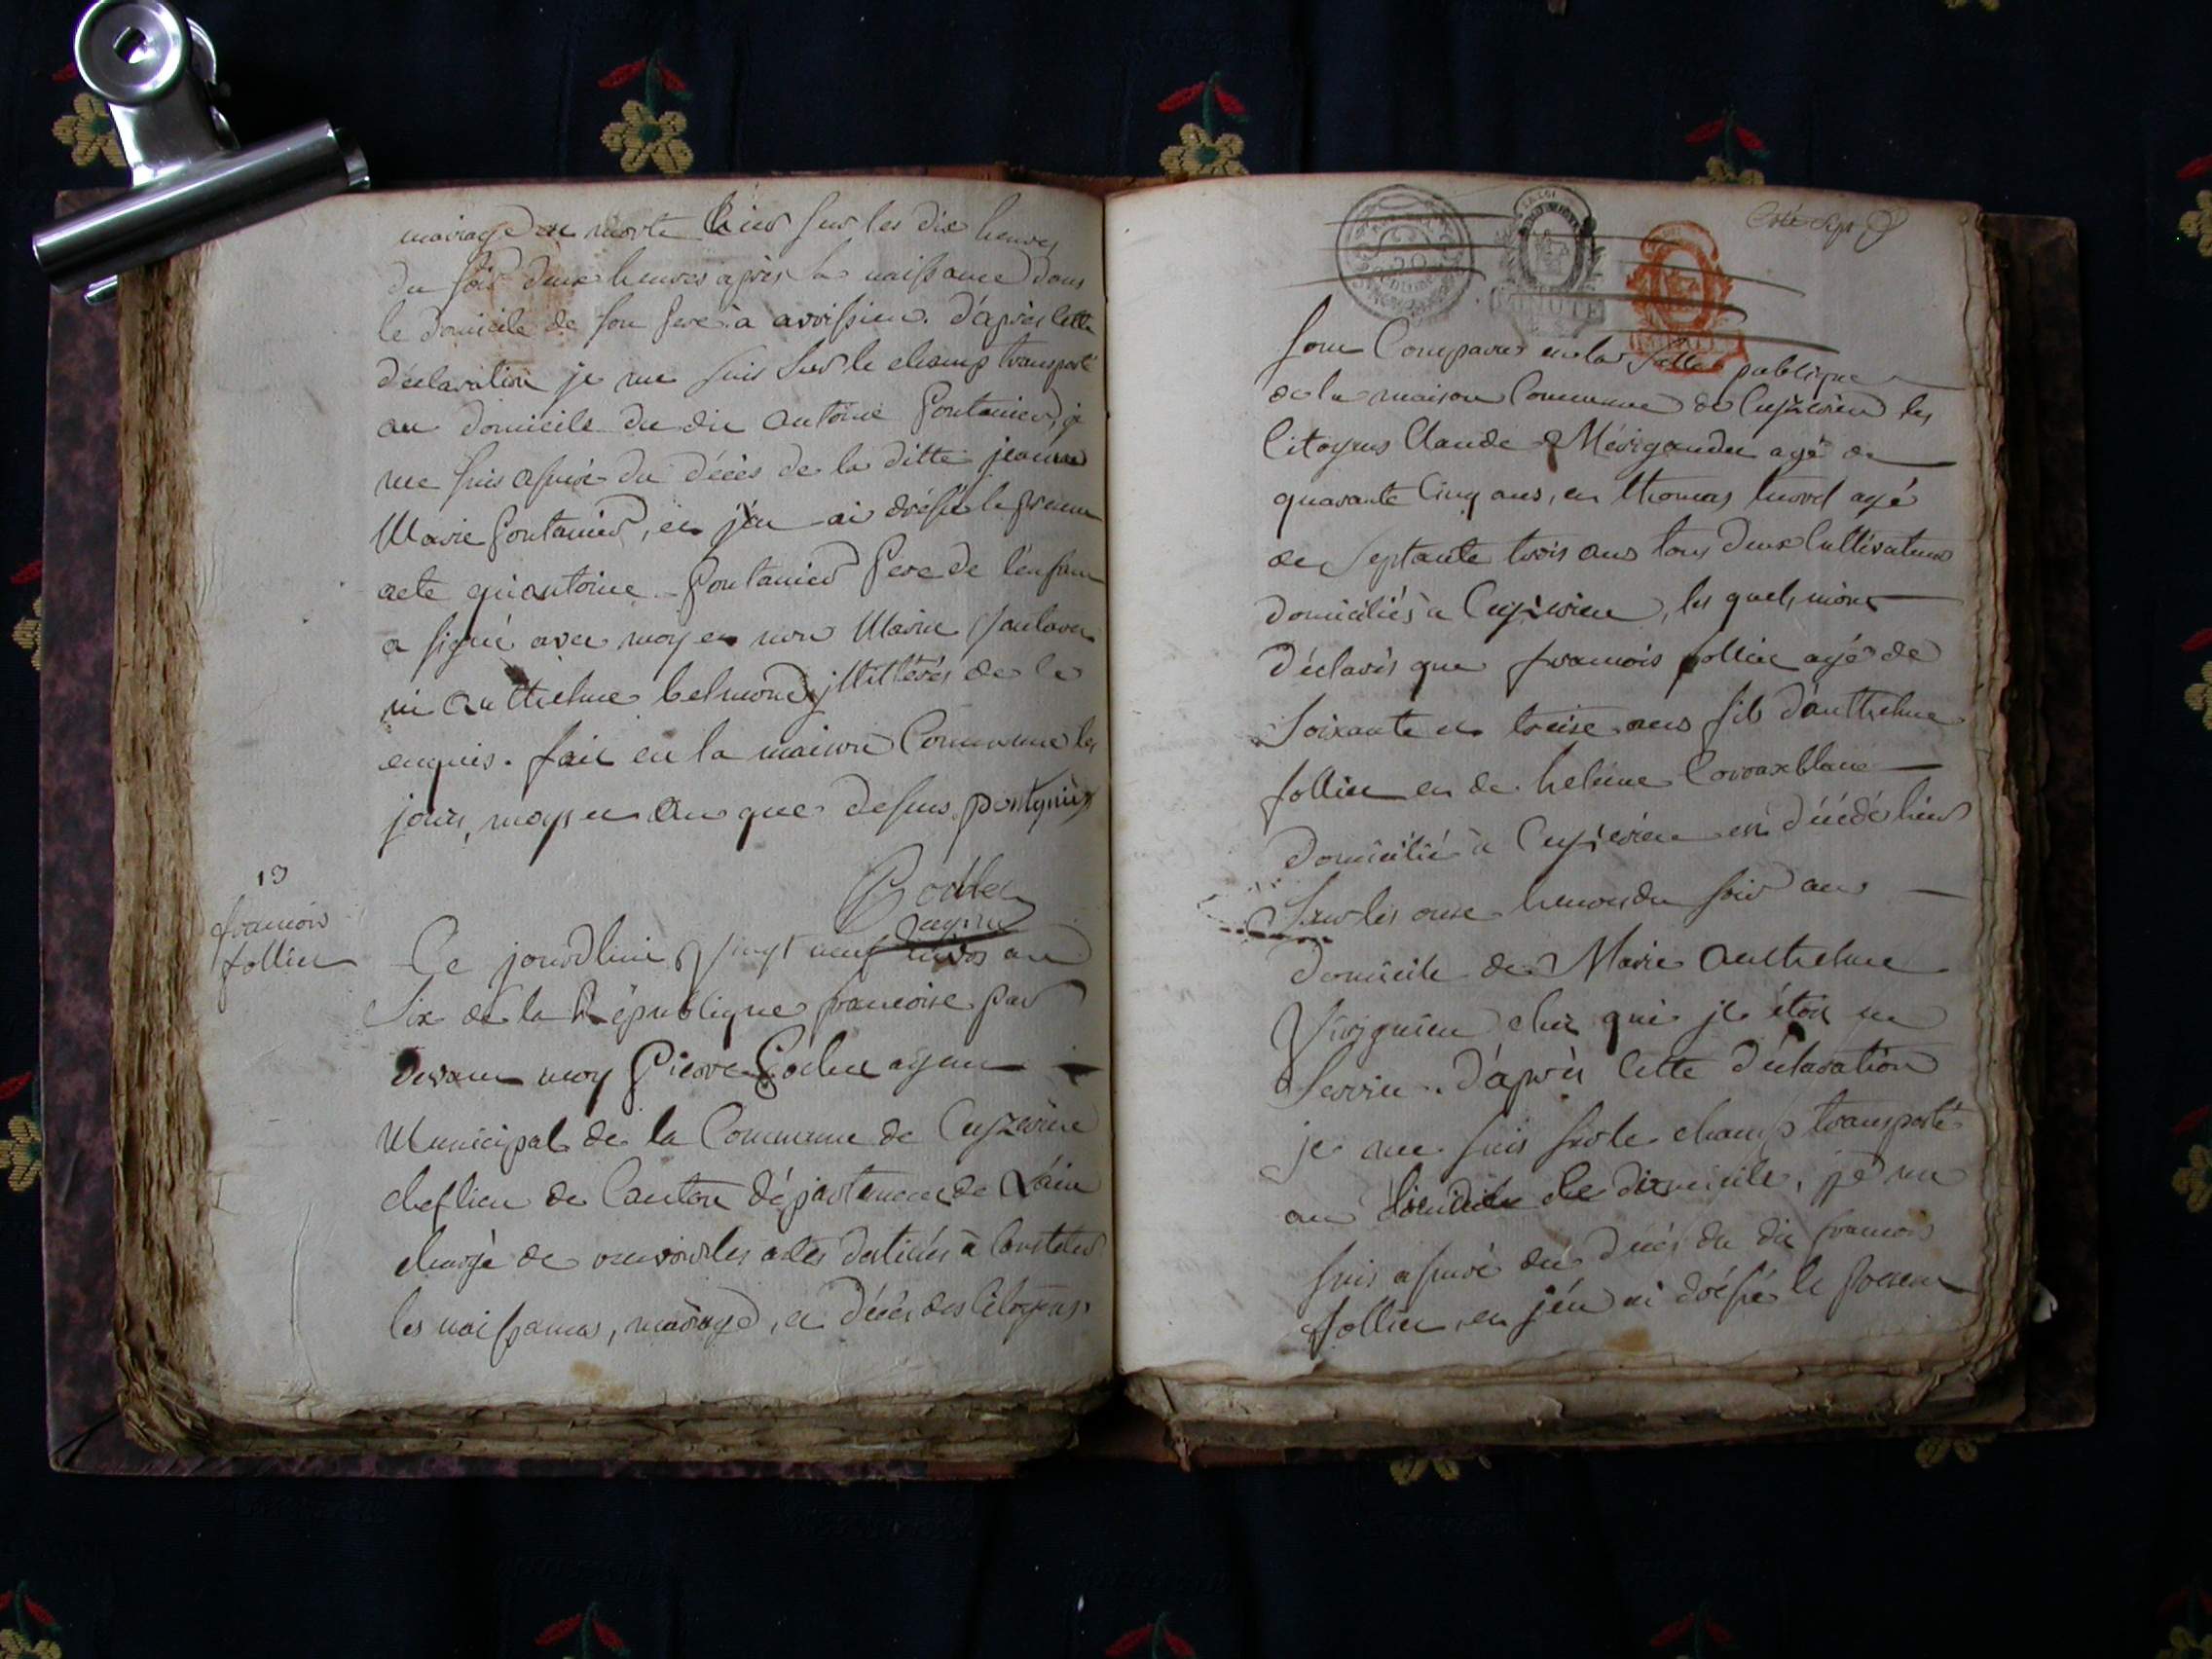 mariage est morte hier sur les dix heures
du soir deux heures après sa naissance dans
le domicile de son pere à avrissieu. d'après cette
déclaration je me suis sur le champ transporté
au domicile du dit antoine pontanier, je
me suis assuré du décès de la ditte jeanne
Marie pontanier, et j'en ai dréssé le présent
acte qu'antoine pontanier pere de l'enfant
a signé avec moy et non Marie
ni Anthelme belmond illitérés de ce
enquis. fait en la maison Commune les
jours, moys et an que dessus.
13
francois
follier
Ce jourdhui vingt neuf nivos an
Six de la République francoise par
devant moy Pierre agent
Municipal de la Commune de Ceyzerieu
cheflieu de Canton département de L'ain
chargé de recevoir les actes destinés à constater
les naissances, mariage, et décès des citoyens,
Coté Sept
20
CENTIMES
LA LOI
MINUTE
sont Comparus en la salle publique
de la maison Commune de Ceyzerieu les
Citoyens Claude Mérigaudu agé de
quarante Cinq ans, et thomas agé
de septante trois ans tous deux Cultivateurs
domiciliés à Ceyzerieu, les quels m'ont
déclarés que francois follier agé de
Soixante et treise ans fils d'anthelme
follier et de helène
domicilié à Ceyzerieu est décédé hier
Sur les onse heures du soir au
domicile de Marie Anthelme
chez qui je étoit en
Service. d'après cette déclaration
je me suis sur le champ transporté
au domicile, je me
suis assuré du décès du dit francois
follier, et j'en ai dréssé le présent